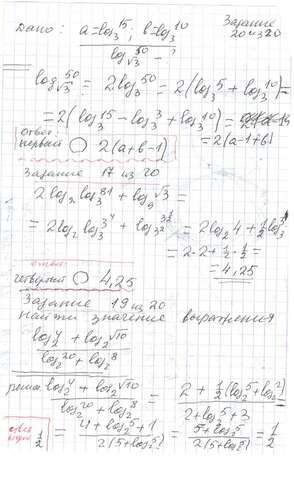 Дано: a=log₃15; b=log₃10
Задание 20 из 20
log_√3 50 - ?
log_√3 50 = 2log₃50 = 2(log₃5 + log₃10) =
= 2(log₃15 - log₃3 + log₃10) =
= 2(a-1+b)
ответ: первый ○ 2(a+b-1)
Задание 17 из 20
2log₂log₃81 + log₉√3 =
= 2log₂log₃3⁴ + log_3² 3^½ = 2log₂4 + ½·½log₃3
= 2·2 + ½·½ =
= 4,25
ответ: четвертый ○ 4,25
Задание 19 из 20
найти значение выражения
log₂4 + log₂√10
log₂20 + log₂8
решен. log₂4 + log₂√10 / log₂20 + log₂8 = 2 + ½(log₂5 + log₂2) / 2 + log₂5 + 3
½ = 4 + log₂5 + 1 / 2(5 + log₂5) = 5 + log₂5 / 2(5 + log₂5) = ½